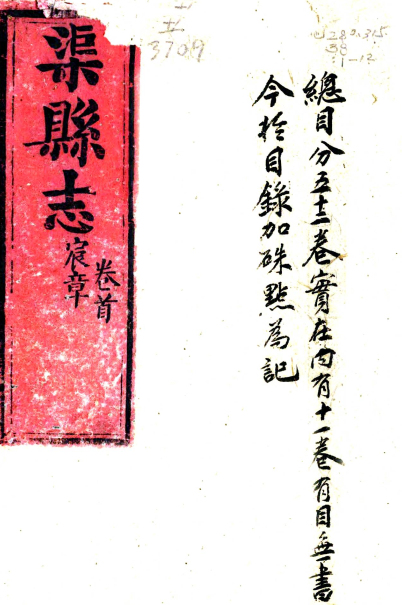 3709
總目分五十二卷實在内有十一卷有目無書
今扵目錄加硃點為記
渠縣志
卷首
宸章